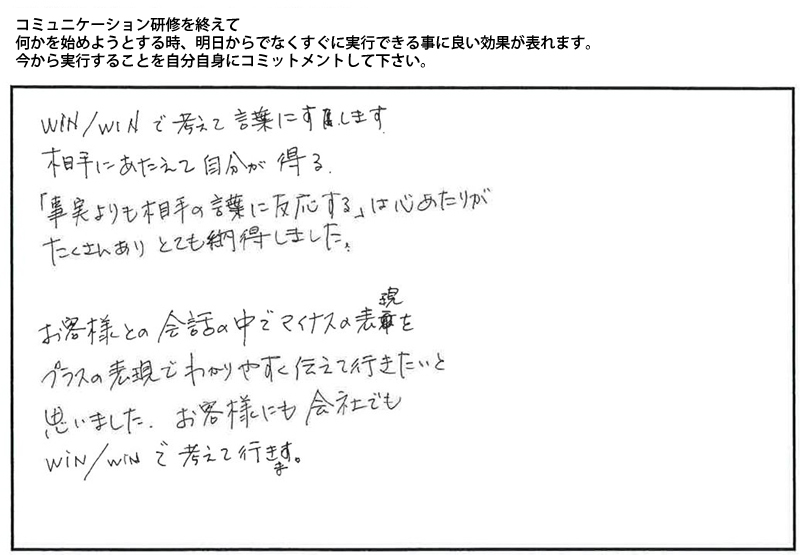 コミュニケーション研修を終えて
何かを始めようとする時、明日からでなくすぐに実行できる事に良い効果が表れます。
今から実行することを自分自身にコミットメントして下さい。
WIN/WIN で考えて言葉にすします
相手にあたえて自分が得る.
「事実よりも相手の言葉に反応する」は心あたりが
たくさんあり とても納得しました。
お客様との会話の中でマイナスの表現を
プラスの表現でわかりやすく伝えて行きたいと
思いました. お客様にも会社でも
WIN/WIN で考えて行きます。